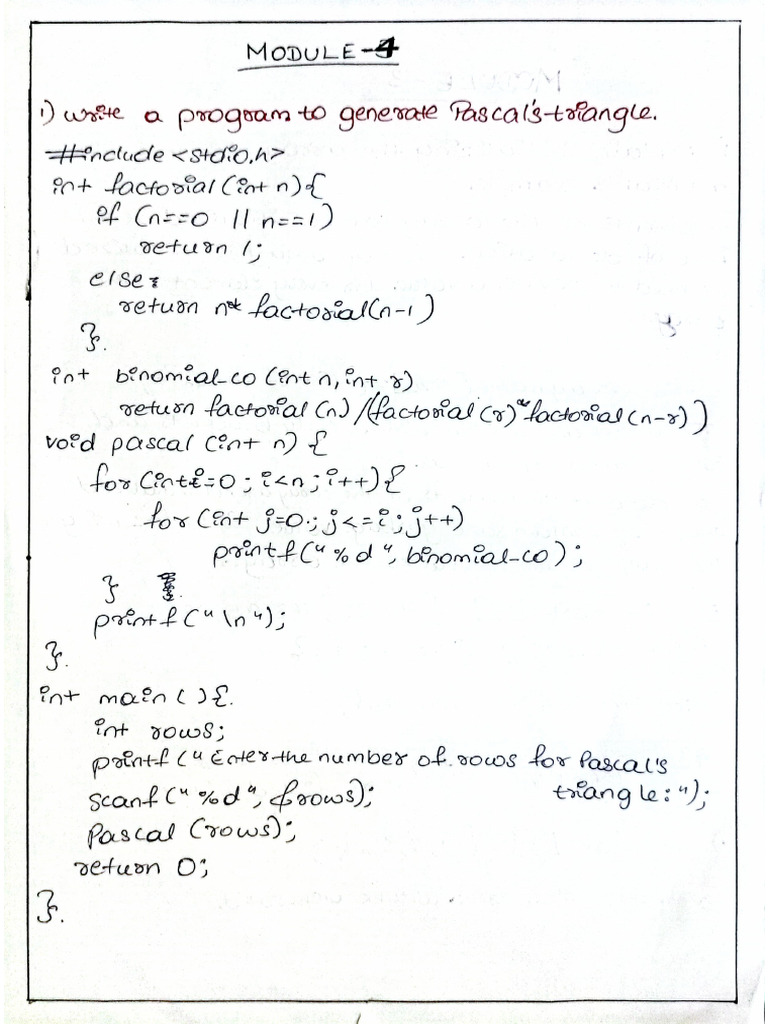 MODULE-4
1) write a program to generate Pascal's-triangle.
#include <stdio.h>
int factorial (int n){
if (n==0 || n==1)
return 1;
else:
return n* factorial(n-1)
}.
int binomial_co (int n, int r)
return factorial (n) /(factorial (r)*factorial(n-r))
void pascal (int n) {
for (int i=0 ; i<n ; i++){
for (int j=0.; j<=i ; j++)
printf(" %d ", binomial_co) ;
}
printf (" \n ");
}.
int main ( ){.
int rows;
printf (" Enter the number of. rows for Pascal's
scanf (" %d ", &rows); triangle: ");
Pascal (rows);
return 0;
}.